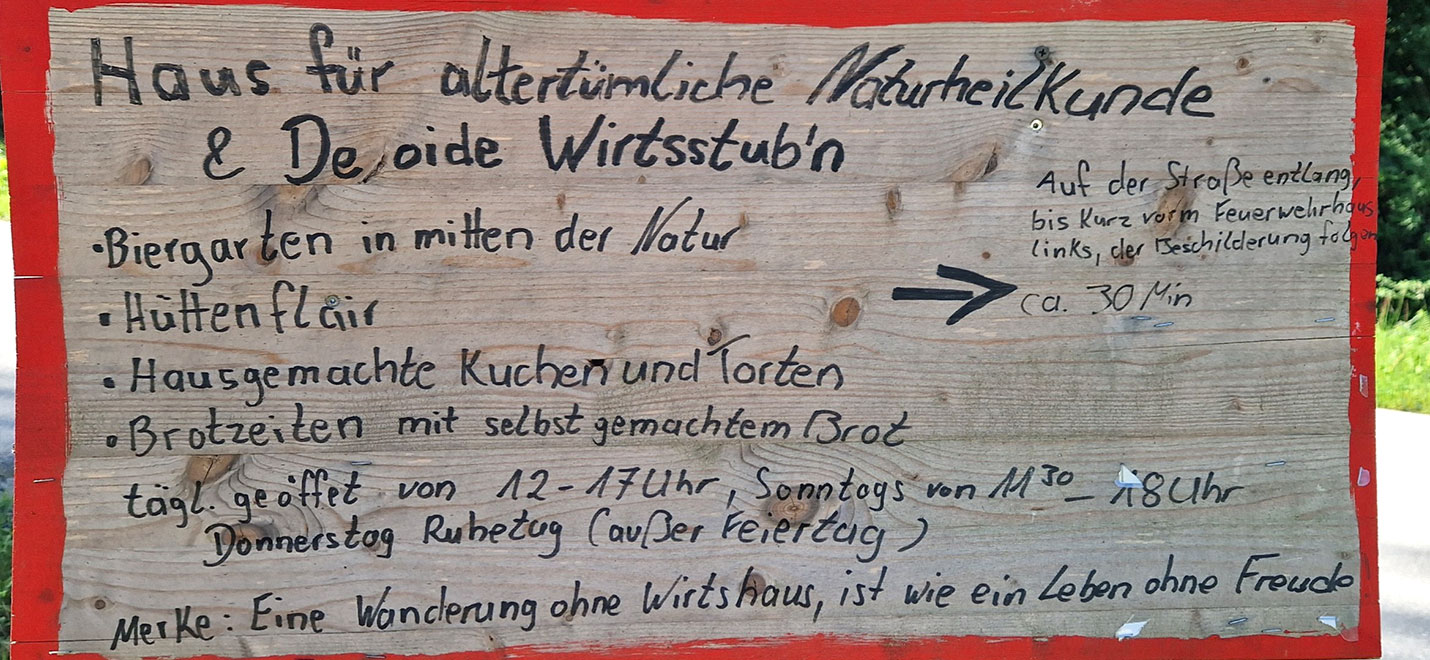 Haus für altertümliche Naturheilkunde
& De oide Wirtsstub'n
Auf der Straße entlang,
bis kurz vorm Feuerwehrhaus
links, der Beschilderung folgen
ca. 30 Min
• Biergarten in mitten der Natur
• Hüttenflair
• Hausgemachte Kuchen und Torten
• Brotzeiten mit selbst gemachtem Brot
tägl. geöffet von 12-17 Uhr, Sonntags von 11³⁰ - 18 Uhr
Donnerstag Ruhetag (außer Feiertag)
Merke: Eine Wanderung ohne Wirtshaus, ist wie ein Leben ohne Freude